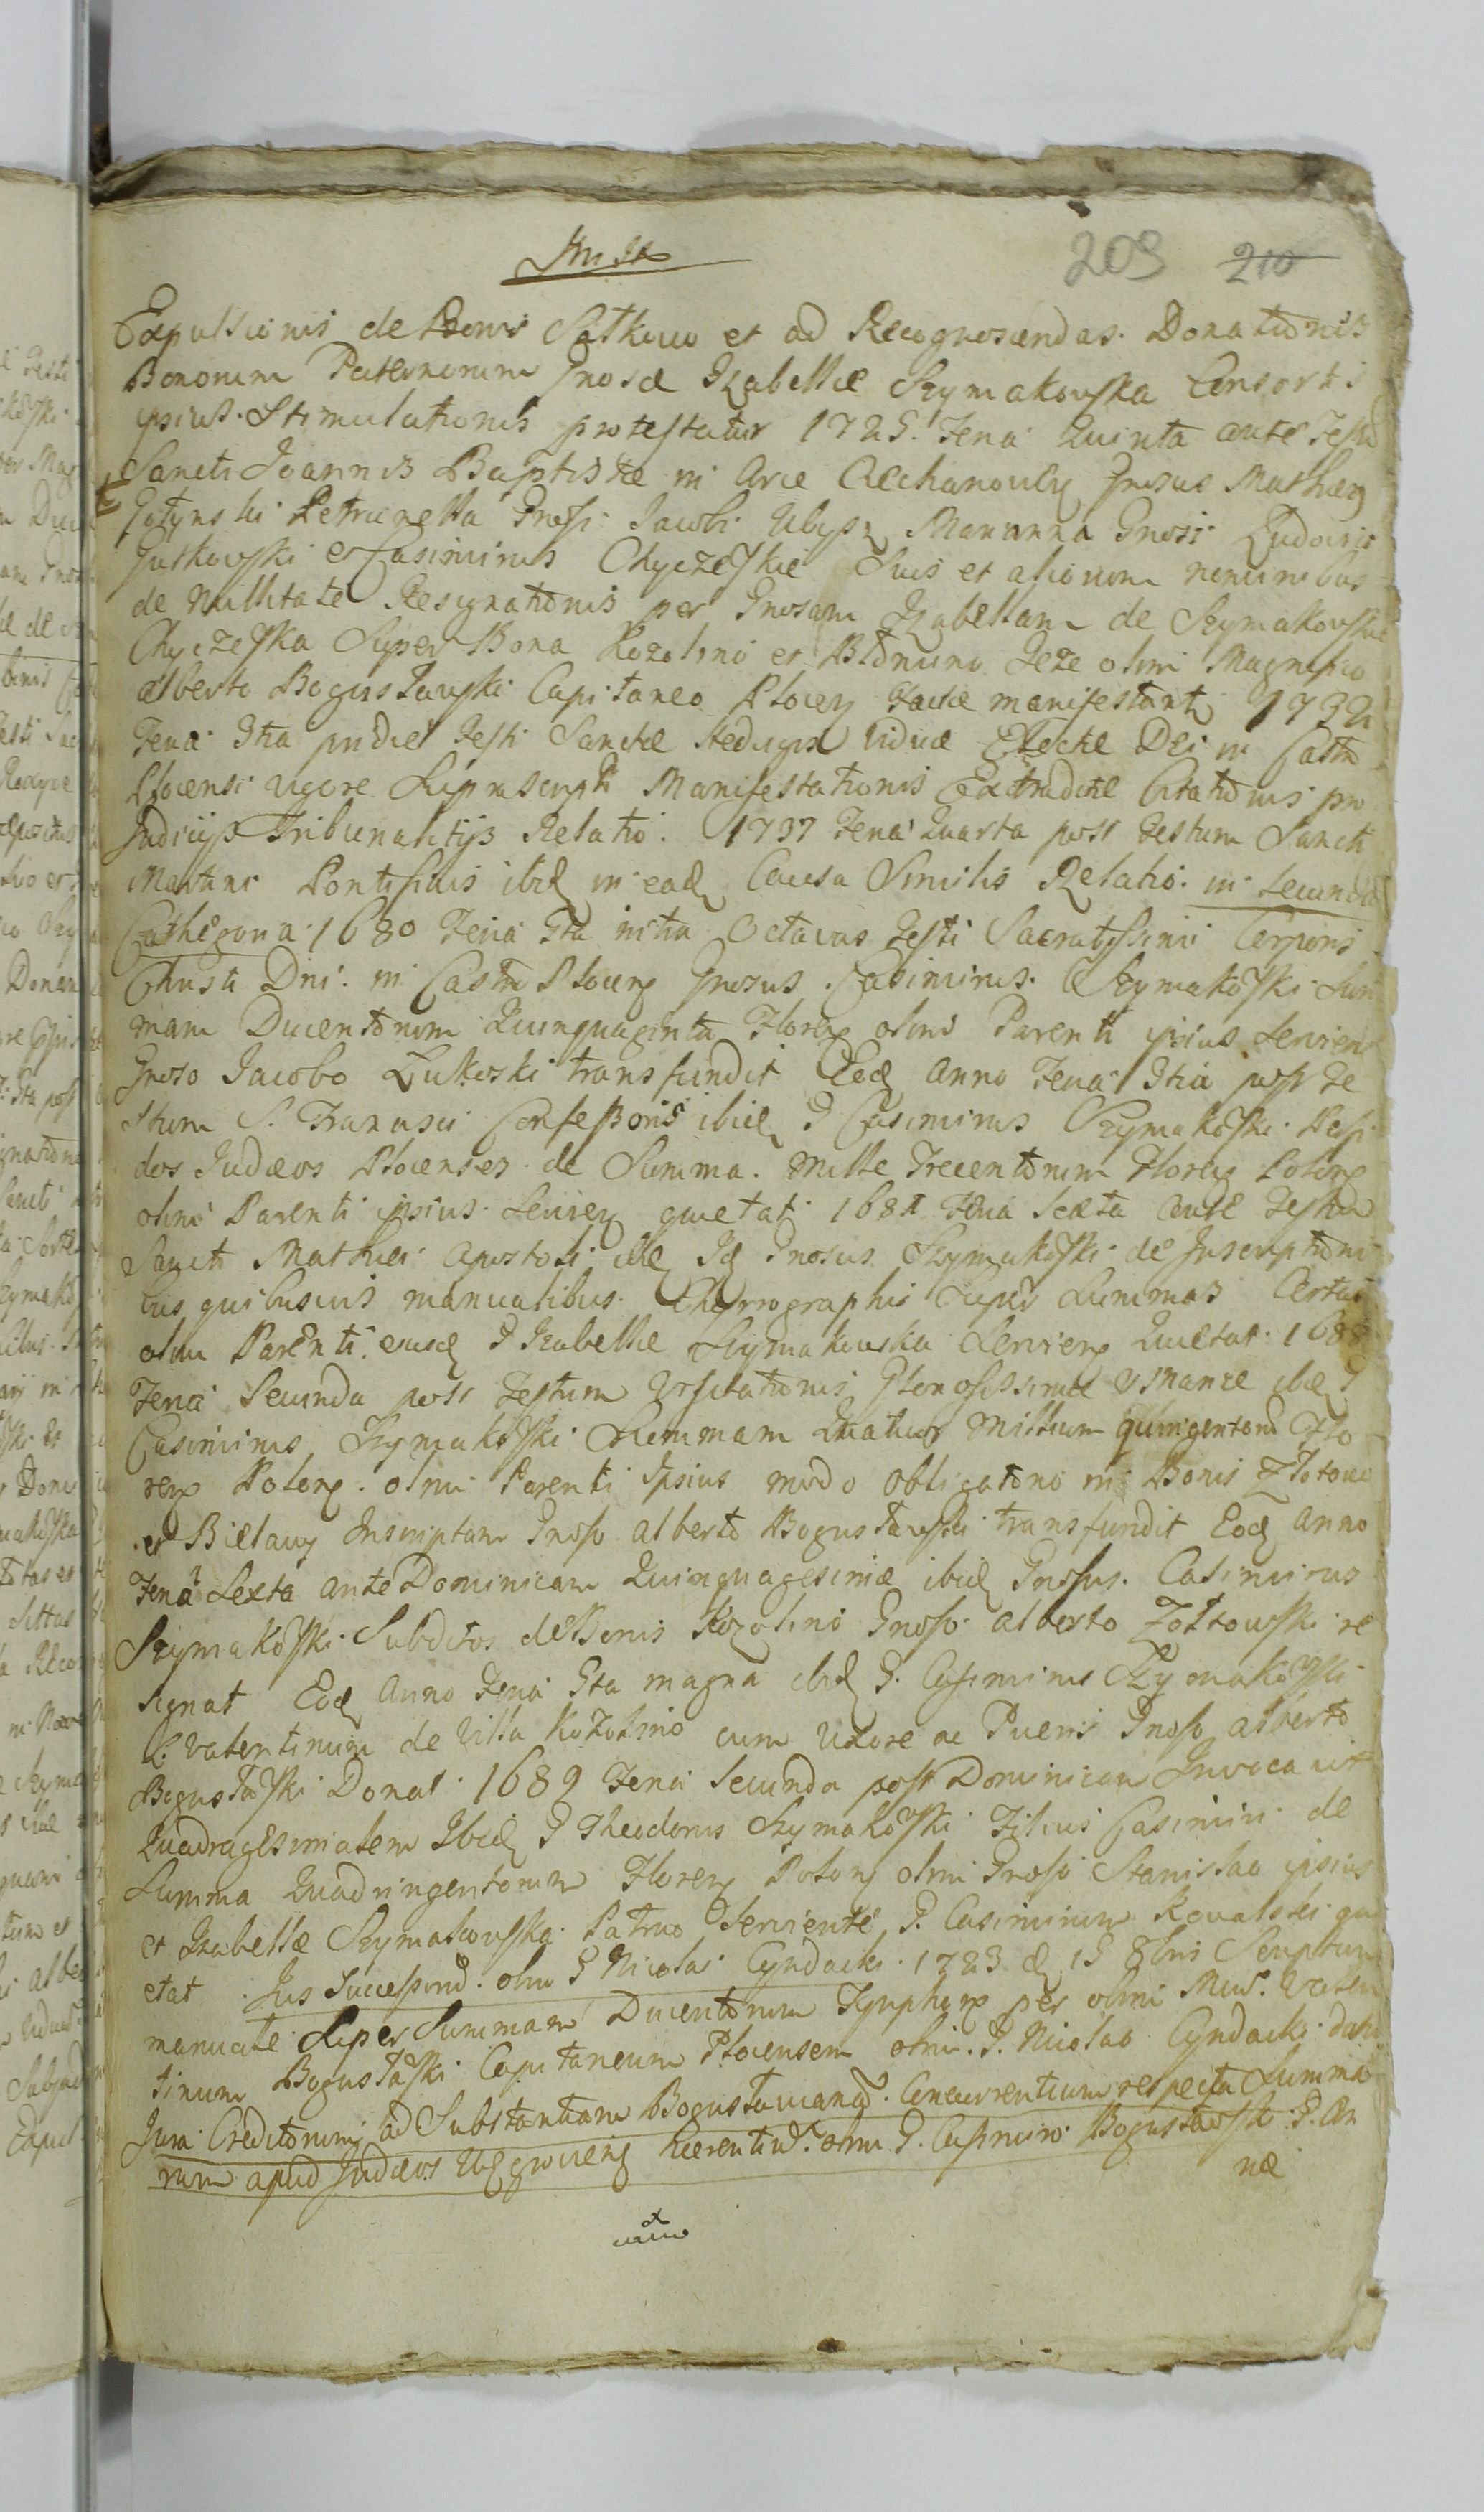 209 210
Expulsionis de Bonis Sitkowo et ad Recognoscendas Donationes
Bonorum Paternorum Gnosæ Izabellæ Szymakowska Consorti
ipsius Stimulationis protestatur 1725. Feria Quinta ante Festū
Sancti Joannis Baptistæ in Arce Ciechanouien Gnosus Mathæus
Petrunella Gnosi Jacobi Ubysz Marianna Gnosi Ludovici
Gutkowski et Casimirus Chyczeskie Suis et aliorum nominibus
de Nullitate Resignationis per Gnosam Izabellam de Szymakowskie
Chyczeska Super Bona Kozolino et Jeze olim Magnifico
Alberto Bogusławski Capitaneo Plocen factæ manifestant 1732
Feria 3tia pridie Festi Sanctæ Hedvigis Viduæ Electæ Dei in Castro
Plocensi vigore Suprascripti Manifestationis Extraditæ Citationis pro
Judicijs Tribunalitijs Relatio. 1737 Feria Quarta post Festum Sancti
Martini Pontificis ibid in ead Causa Similis Relatio. in Secunda
Cathegoria 1680 Feria 5ta intra Octavas Festi Sacratissimi Corporis
Christi Dni. in Castro Plocen Gnosus Casimirus Szymakoski Sum
mam Ducentorum Quinquaginta Floren olim Parenti ipsius Servien
Gnoso Jacobo Lukoski transfundit Eod anno Feria 3tia post Fe
stum S. Francisci Confessoris ibid G Casimirus Szymakoski Perfi
dos Judæos Plocenses de Summa Mille Trecentorum Floren Polon
olim Parenti ipsius Servien quietat 1681 Feria Sexta ante Festum
Sancti Mathæi Apostoli ibid Id Gnosus Szymakoski de Inscriptioni
bus quibusvis manualibus Chyrographis Super Summas Certas
olim Parenti eiusd G Izabellæ Szymakowska Servien Quietat 1688
Feria Secunda post Festum Visitationis Gloriosissimæ V Mariæ ibid G
Casimirus Szymakoski Summam Quatuor Millium quingentorū Flo
ren Polon. olim Parenti Ipsius modo obligatorio in Bonis Złotowo
et Bielawy Inscriptam Gnoso Alberto Bogusławski transfundit Eod Anno
Feria Sexta ante Dominicam Quinquagesimæ ibid Gnosus Casimirus
Szymakoski Subditos de Bonis Kozolino Gnoso Alberto Zołtowski re
signat Eod Anno Feria 5ta magna ibid G. Casimirus Szymakoski
L. Valentinum de Villa Kozolino cum Uxore ac Pueris Gnoso Alberto
Bogusłaski Donat 1689 Feria Secunda post Dominicam Invocavit
Quadragesimalem Ibid G Theodorus Szymakoski Filius Casimiri de
Summa Quadringentorum Floren Polon olim Gnoso Stanislao ipsius
et Izabellæ Szymakowska Patruo Serviente G. Casimirum Kowalski qui
etat Jus Successorū olim G Nicolai Cyndacki 1723 d 15 8bris Scriptum
manuale Super Summam Ducentorum Tynphon per olim Mud. Valen
tinum Bogusłaski Capitaneum Plocensem olim G. Nicolao Cyndacki datū
Jura Creditorum ad Substantiam Bogusławianā Concurrentium respectu Summa
rum apud Judæos Węgrovien hærentiū olim G. Casimiro Bogusławski G. An
næ